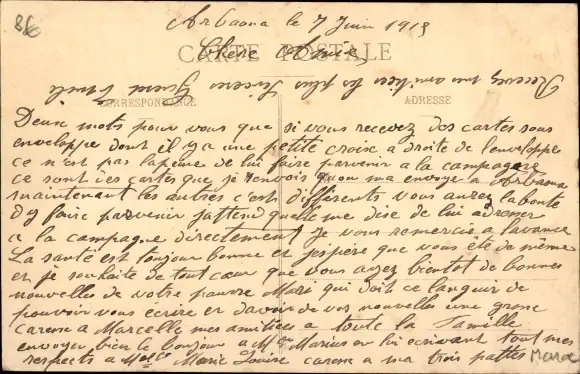 86
Arbaoua le 7 Juin 1913
CARTE POSTALE
Chère Amie
Recevez mes amitiés les plus sincères
CORRESPONDANCE
ADRESSE
Deux mots pour vous que si vous recevez des cartes sous
enveloppe dont il y a une petite croix a droite de l'enveloppe
ce n'est pas la peine de lui faire parvenir a la campagne
ce sont des cartes que je renvois qu'on ma envoyé a Arbaoua
maintenant les autres c'est différents vous aurez la bonté
d'y faire parvenir j'attend quelle me dise de lui adresser
a la campagne directement Je vous remercie a l'avance
La santé est toujour bonne et j'espère que vous ete de même
et je souhaite de tout cœur que vous ayez bientot de bonnes
nouvelles de votre pauvre Mari qui doit ce languir de
pouvoir vous ecrire et d'avoir de vos nouvelles une grosse
caresse a Marcelle mes amitiées a toute la famille
envoyer bien le bonjour a Mr Marius en lui ecrivant tout mes
respects a Melle Marie Louise caresse a ma trois pattes
Maroc